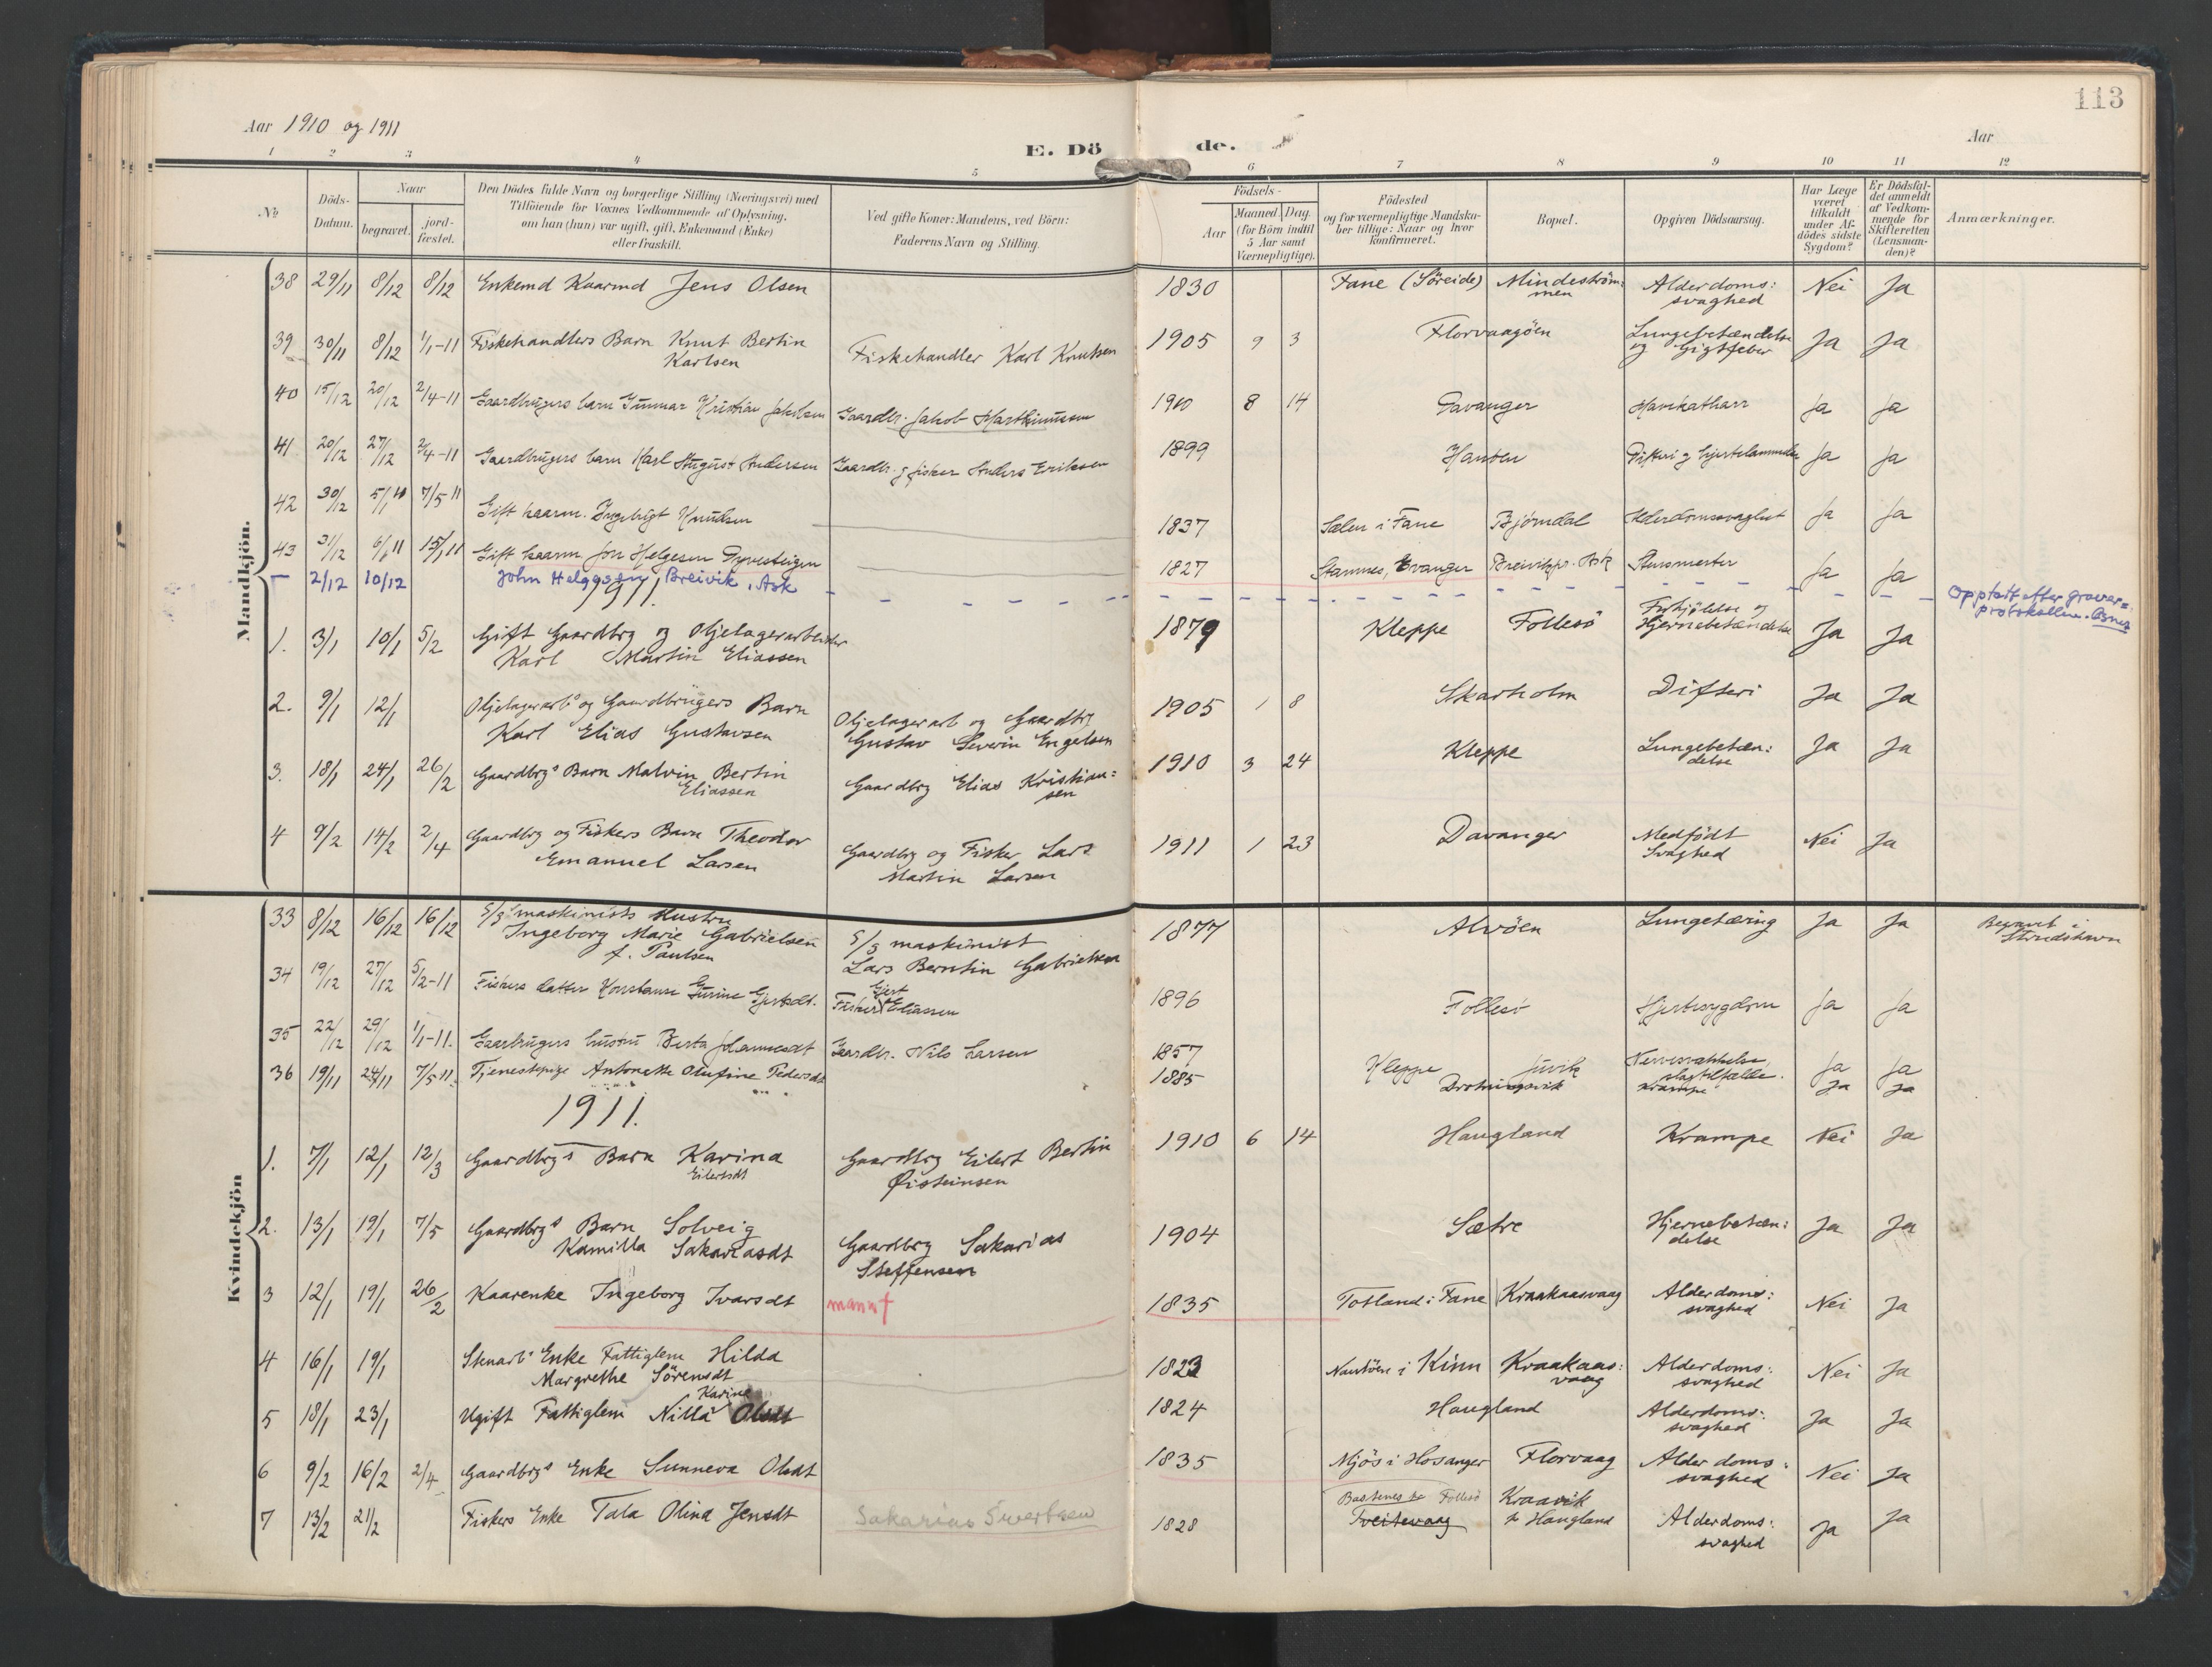 113
Aar 1910 og 1911
E. Dö de.
Aar
1 2 3 4 5 6 7 8 9 10 11 12
№
Döds-Datum.
Naar
begravet.
jordfæstet.
Den Dödes fulde Navn og borgerlige Stilling (Næringsvei) med
Tilföiende for Voxnes Vedkommende af Oplysning,
om han (hun) var ugift, gift, Enkemand (Enke)
eller fraskilt.
Ved gifte Koner: Mandens, ved Börn:
Faderens Navn og Stilling.
Födsels-
Aar
Maaned. Dag.
(for Börn indtil
5 Aar samt
Værnepligtige).
Födested
og for værnepligtige Mandskaber tillige: Naar og hvor
konfirmeret.
Bopæl.
Opgiven Dödsaarsag.
Har Læge
været
tilkaldt
under Afdödes sidste
Sygdom?
Er Dödsfaldet anmeldt
af Vedkommende for
Skifteretten
(Lensmanden)?
Anmærkninger.
Mandkjön.
38 29/11 8/12 8/12 Enkemd Kaarmd Jens Olsen 1830 Fane (Söreide) Mindeström:
men Alderdoms:
svaghed Nei Ja
39 30/11 8/12 1/1-11 Fiskehandlers Barn Knut Bertin
Karlsen Fiskehandler Karl Knutsen 1905 9 3 Florvaagöen Lungebetændelse
og Gigtfeber Ja Ja
40 15/12 20/12 2/4-11 Gaardbrugers barn Gunnar Kristian Jakobsen Gaardbr. Jakob Martinussen 1900 8 14 Davanger Mavekatharr Ja Ja
41 20/12 27/12 2/4-11 Gaardbrugers barn Karl August Andersen Gaardbr. g fisker Anders Eriksen 1899 Hanøen Difteri g hjertelammelse Ja Ja
42 30/12 5/1 11 7/5 11 Gift kaarm. Ingebrigt Knudsen 1837 Sælen i Fane Bjørndal Alderdomssvaghet Ja Ja
43 31/12 6/1 11 15/1 11 Gift kaarm Jon Helgesen Dyvesteigen 1827 Stamnes, Evanger Breivik pr. Ask Ja Ja
— 2/12 10/12 John Helgesen, Breivik, Ask
Opptatt efter graver=
protokollen.
1911.
1. 3/1 10/1 5/2 Gift Gaardbrg og Oljelagerarbeider
Karl Martin Eliassen 1879 Kleppe Follesö Forkjölelse og
Hjernebetændelse Ja Ja
2. 9/1 12/1 Oljelagerarbs og Gaardbrugers Barn
Karl Elias Gustavsen Oljelagerarb og Gaardbrg
Gustav Severin Engelsen 1905 1 8 Skarholm Difteri Ja Ja
3. 18/1 24/1 26/2 Gaardbrgs Barn Malvin Bertin
Eliassen Gaardbrg Elias Kristian=
sen 1910 3 24 Kleppe Lungebetæn:
delse Ja Ja
4 9/2 14/2 2/4 Gaardbrg og Fiskers Barn Theodor
Emanuel Larsen Gaardbrg og Fisker Lars
Martin Larsen 1911 1 23 Davanger Medfödt
Svaghed Nei Ja
Kvindekjön
33 8/12 16/12 16/12 S/s maskinists Hustru
Ingeborg Marie Gabrielsen
f. Paulsen S/s maskinist
Lars Berntin Gabrielsen 1877 Alvöen Lungetæring Ja Ja Begravet i
34 19/12 27/12 5/2-11 Fiskers datter Konstanse Gurine Gjertsdt. Fisker Gjert Eliassen 1896 Follesö Hjertesygdom Ja Ja
35 22/12 29/12 1/1-11. Gaarbrugers hustru Berta Johannesdt Gaardbr. Nils Larsen 1857 Kleppe Juvik Nervesvækkelse,
slagtilfælde. Ja Ja
36 19/11 24/11 7/5 11. Tjenestepige Antonette Olufine Pedersdt 1885 Drotningsvik Krampe Ja Ja
1911.
1. 7/1 12/1 12/3 Gaardbrgs Barn Karina
Eilertsdt Gaardbrg Eilert Bertin
Øisteinsen 1910 6 14 Haugland Krampe Nei Ja
2. 13/1 19/1 7/5 Gaardbrgs Barn Solveig
Kamilla Sakariasdt Gaardbrg Sakarias
Steffensen 1904 Sætre Hjernebetæn:
delse Ja Ja
3 12/1 19/1 26/2 Kaarenke Ingeborg Ivarsdt mann † 1835 Totland i Fane Kraakaasvaag Alderdoms:
svaghed Nei Ja
4 16/1 19/1 Stuarbs Enke Fattiglem Hilda
Margrethe Sörensdt 1823 i Kinn Kraakaas:
vaag Alderdoms:
svaghed Nei Ja
5 18/1 23/1 Ugift Fattiglem Nilla Karine Olsdt 1824 Haugland Alderdoms:
svaghed Ja Ja
6 9/2 16/2 2/4 Gaardbrgs Enke Sunneva Olsdt 1835 Mjös i Hosanger Florvaag Alderdoms:
svaghed Nei Ja
7 13/2 21/2 Fiskers Enke Tala Olina Jensdt Sakarias Sivertsen 1828 Follesö
Tveitevaag Kraavik
p Haugland Alderdoms:
svaghed Ja Ja